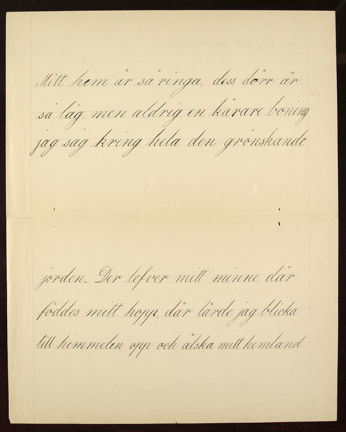 Mitt hem är så ringa, dess dörr är
så låg, men aldrig en kärare boning
jag såg kring hela den grönskande
jorden. Der lefver mitt minne, där
föddes mitt hopp, där lärde jag blicka
till himmelen opp och älska mitt hemland